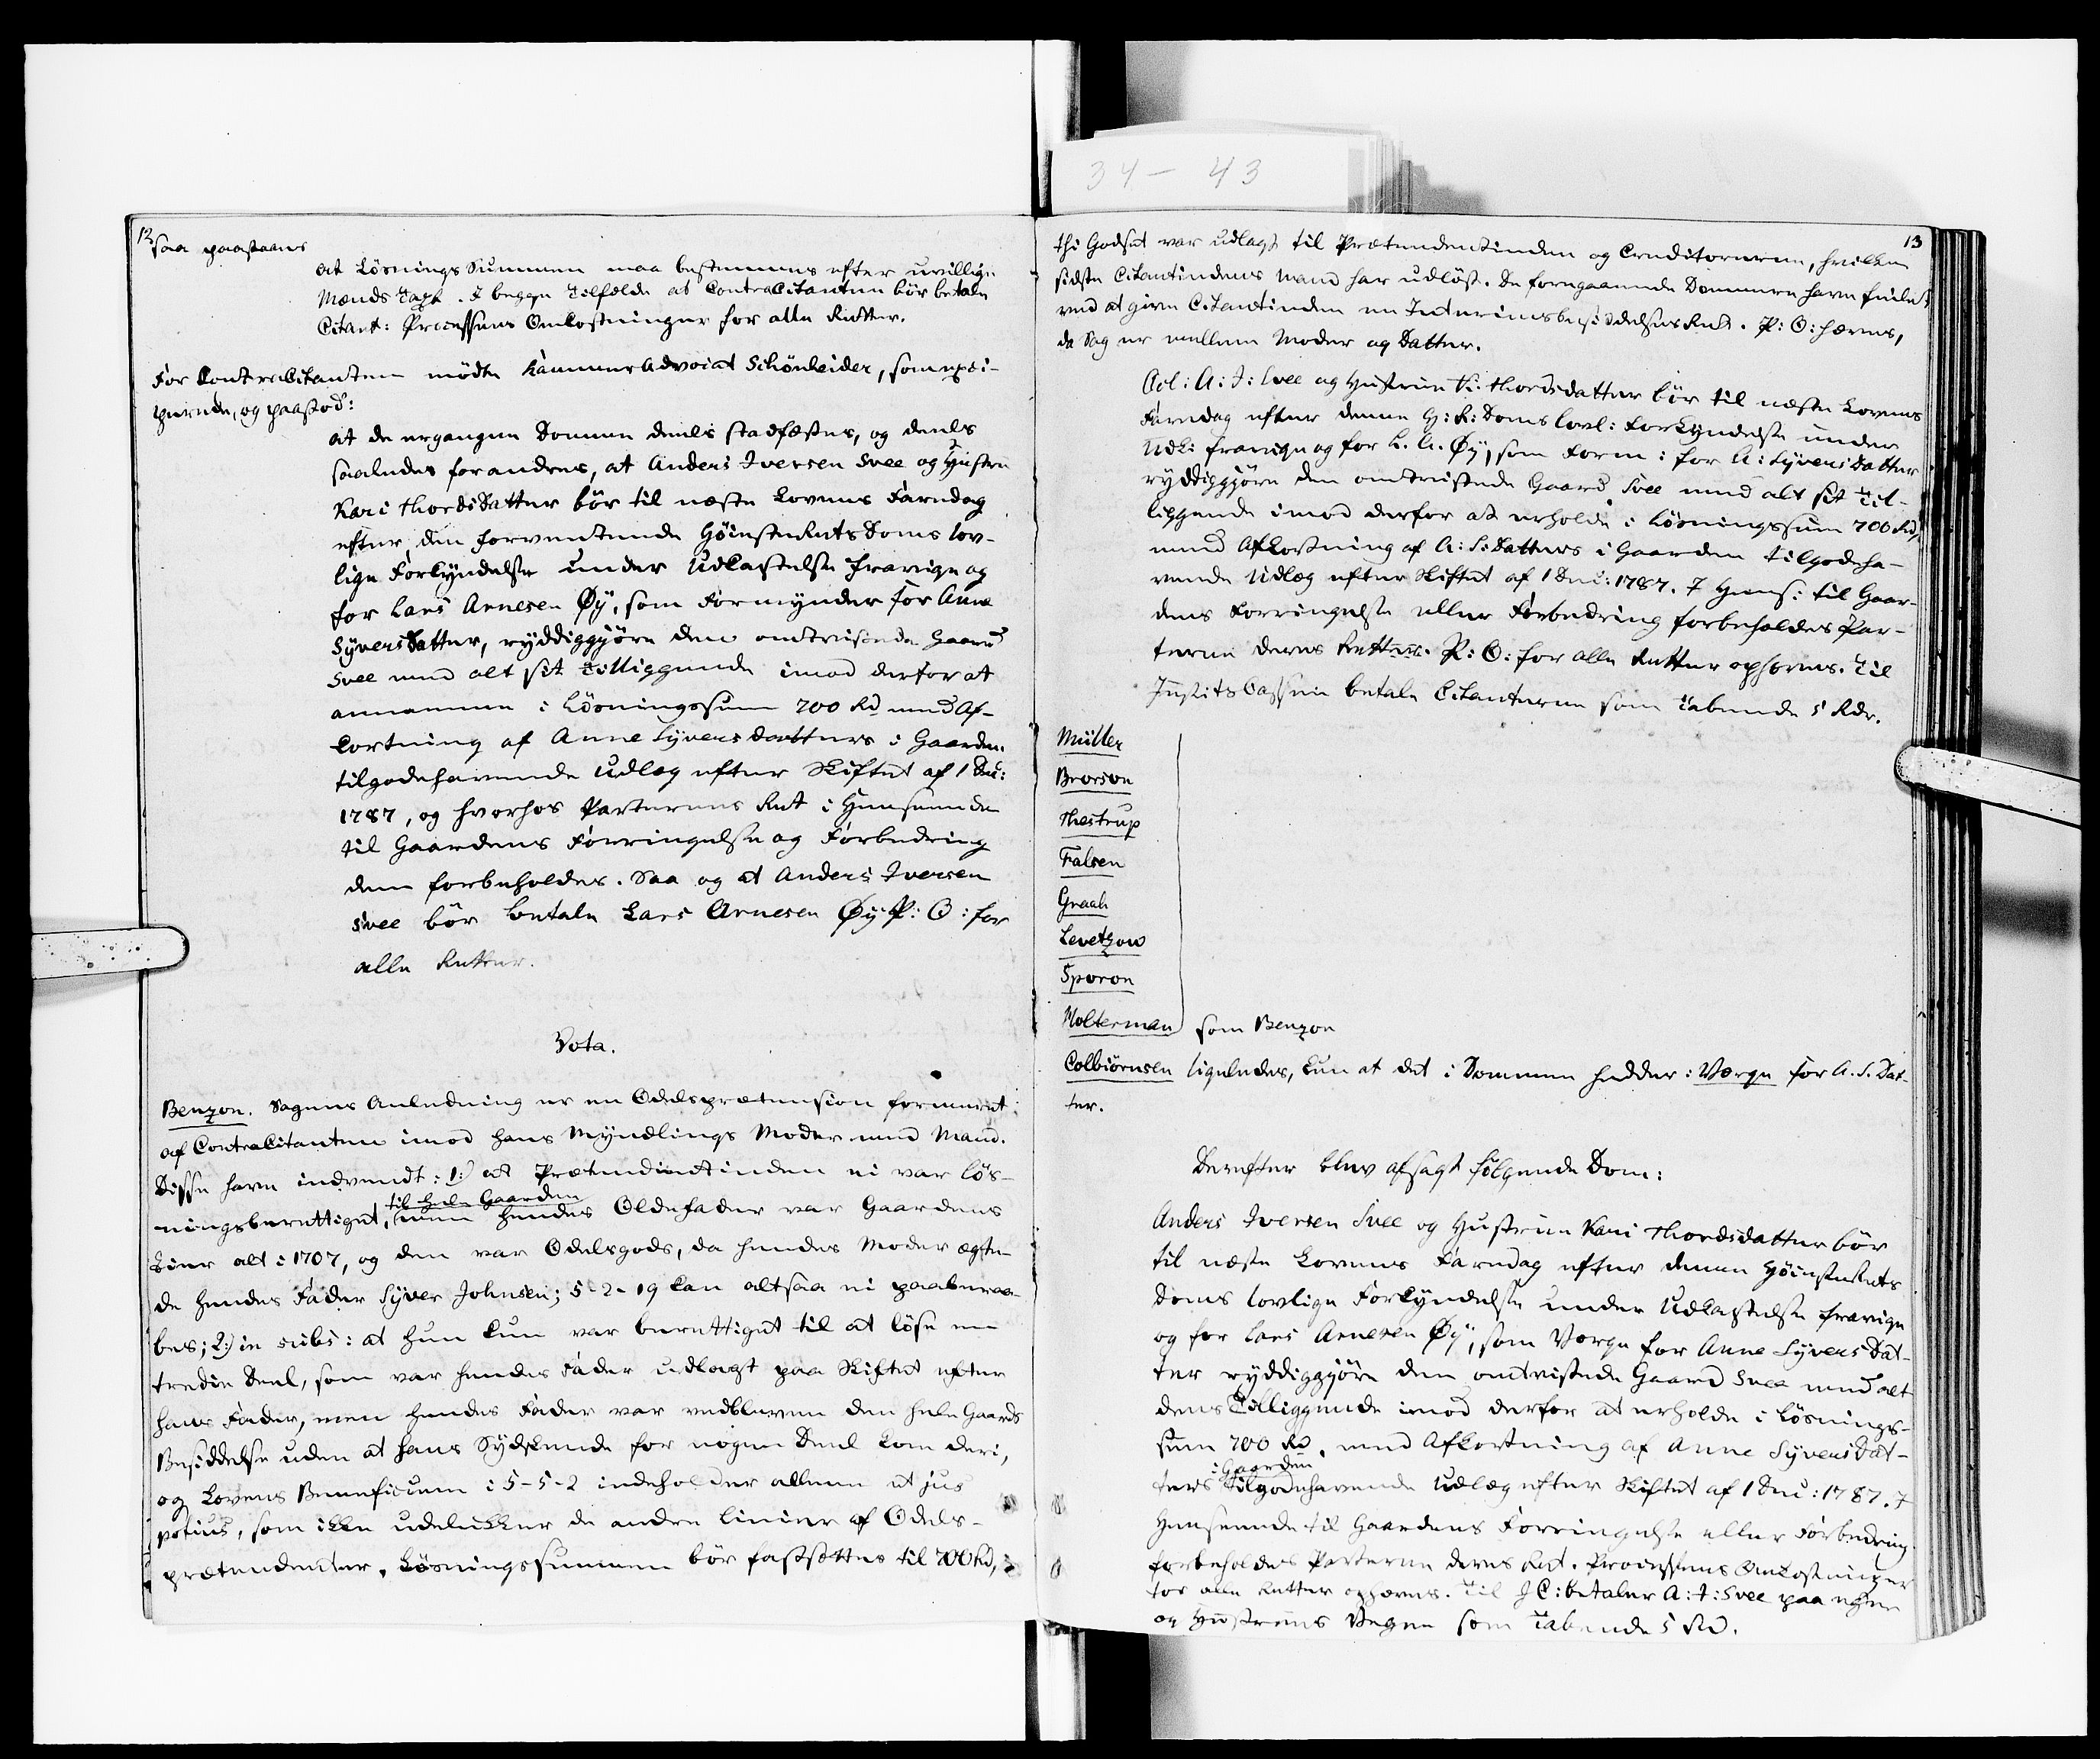 34 - 43
12
saa paastaaes
at Løsnings Summen maa bestemmes efter uvillige
Mænds Taxt. I begge Tilfælde at ContraCitanten bør betale
Citant: Processens Omkostninger for alle Retter.
For ContraCitanten mødte KammerAdvocat Schønheider, som exci-
perede, og paastod:
at de ergangne Domme deels stadfæstes, og deels
saaledes forandres, at Anders Iversen Svee og Hustru
Kari Thordsdatter bør til næste Lovens Faredag
efter den forventende HøiesteRets Doms lov-
lige Forkyndelse under Udkastelse fravige og
for Lars Arnesen Øÿ, som Formynder for Anne
Syversdatter, ryddiggjøre den omtvistede Gaard
Svee med alt sit Tilliggende imod derfor at
annamme i Løsningssum 700 Rd med Af-
kortning af Anne Syversdatters i Gaarden
tilgodehavende Udlæg efter Skiftet af 1 Dec:
1787, og hvorhos Parternes Ret i Henseende
til Gaardens Forringelse og Forbedring
dem forbeholdes. Saa og at Anders Iversen
Svee bør betale Lars Arnesen Øÿ P: O: for
alle Retter.
Vota.
Benzon. Sagens Anledning er en Odelsprætension formeret
af ContraCitanten imod hans Myndlings Moder med Mand.
Disse have indvendt: 1:) at Prætendentinden ei var løs-
ningsberettiget til hele Gaarden, men hendes Oldefader var Gaardens
Eier alt i 1707, og den var Odelsgods, da hendes Moder ægte-
de hendes Fader Syver Johnsen; 5-2-19 kan altsaa ei paaberaa-
bes; 2:) in subs: at hun kun var berettiget til at løse en
tredie Deel, som var hendes Fader udlagt paa Skiftet efter
hans Fader, men hendes Fader var vedbleven den hele Gaards
Besiddelse uden at hans Sydskende for nogen Deel kom deri,
og Lovens Beneficium i 5-5-2 indeholder alleene et jus
potius, som ikke udelukker de andre linier af Odels-
prætendenter. Løsningssummen bør fastsættes til 700 Rd,
13
thi Godset var udlagt til Prætendentinden og Creditorerne, hvilken
sidste Citantindens Mand har udløst. De foregaaende Dommere have feilet
ved at give Citantinden en Interimsbesiddelses Ret. P: O: hæves,
da Sag er mellem Moder og Datter.
Ccl: A: I: Svee og Hustrue K: Thordsdatter bør til næste Lovens
Faredag efter denne H: R: Doms lovl: Forkyndelse under
Udk: fravige og for L. A. Øÿ, som Form: for A: Syversdatter
ryddiggjøre den omtvistede Gaard Svee med alt sit Til-
liggende imod derfor at erholde i Løsningssum 700 Rd,
med Afkortning af A: S: Datters i Gaarden tilgodeha-
vende Udlæg efter Skiftet af 1 Dec: 1787. I Hens: til Gaar-
dens Forringelse eller Forbedring forbeholdes Par-
terne deres Retten. P: O: for alle Retter ophæves. Til
Justits Cassen betale Citanterne som Tabende 5 Rdr.
Müller
Brorson
Thestrup
Falsen
Graah
Levetzow
Sporon
Wolterman som Benzon
Colbiørnsen ligeledes, kun at det i Dommen hedder: Værge for A. S. Dat-
ter.
Derefter blev afsagt følgende Dom:
Anders Iversen Svee og Hustrue Kari Thordsdatter bør
til næste Lovens Faredag efter denne HøiesteRets
Doms lovlige Forkyndelse under Udkastelse fravige
og for Lars Arnesen Øÿ, som Værge for Anne Syvers Dat-
ter ryddiggjøre den omtvistede Gaard Svee med alt
dens Tilliggende imod derfor at erholde i Løsnings-
sum 700 Rd, med Afkortning af Anne Syvers Dat-
ters i Gaarden tilgodehavende Udlæg efter Skiftet af 1 Dec: 1787. I
Henseende til Gaardens Forringelse eller Forbedring
forbeholdes Parterne deres Ret. Processens Omkostninger
for alle Retter ophæves. Til J C: betaler A: I: Svee paa egne
og Hustrues Vegne som Tabende 5 Rd.